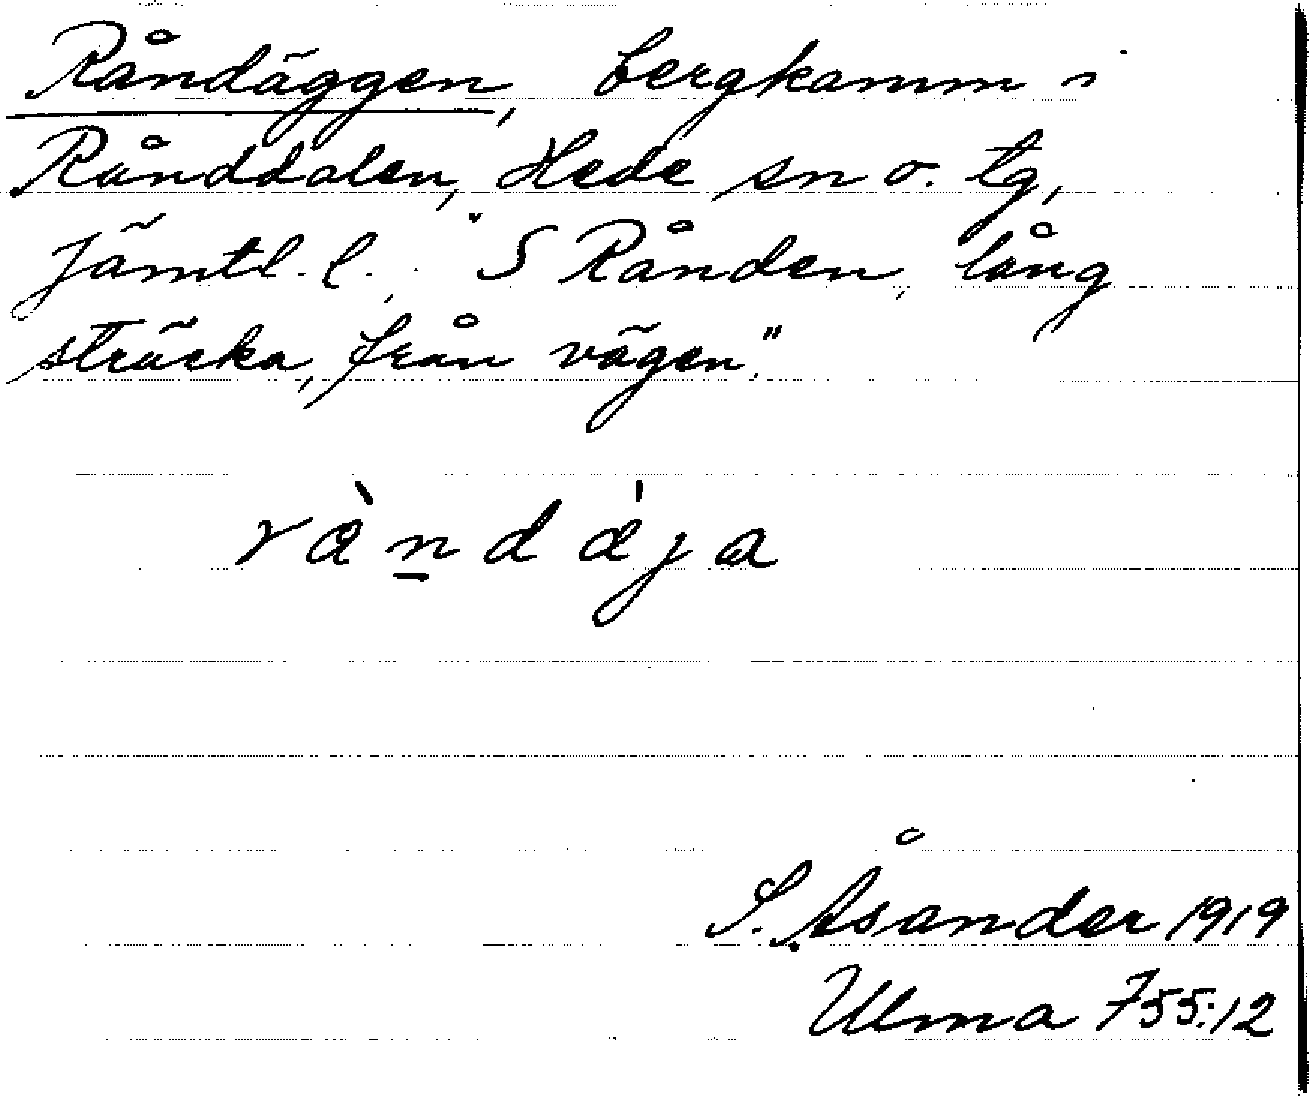 Råndäggen, bergkamm i
Rånddalen, Hede sn o. tg,
Jämtl. l. "S Rånden, lång
sträcka, från vägen."
råndäja
S. Åsander 1919
Ulma 755:12